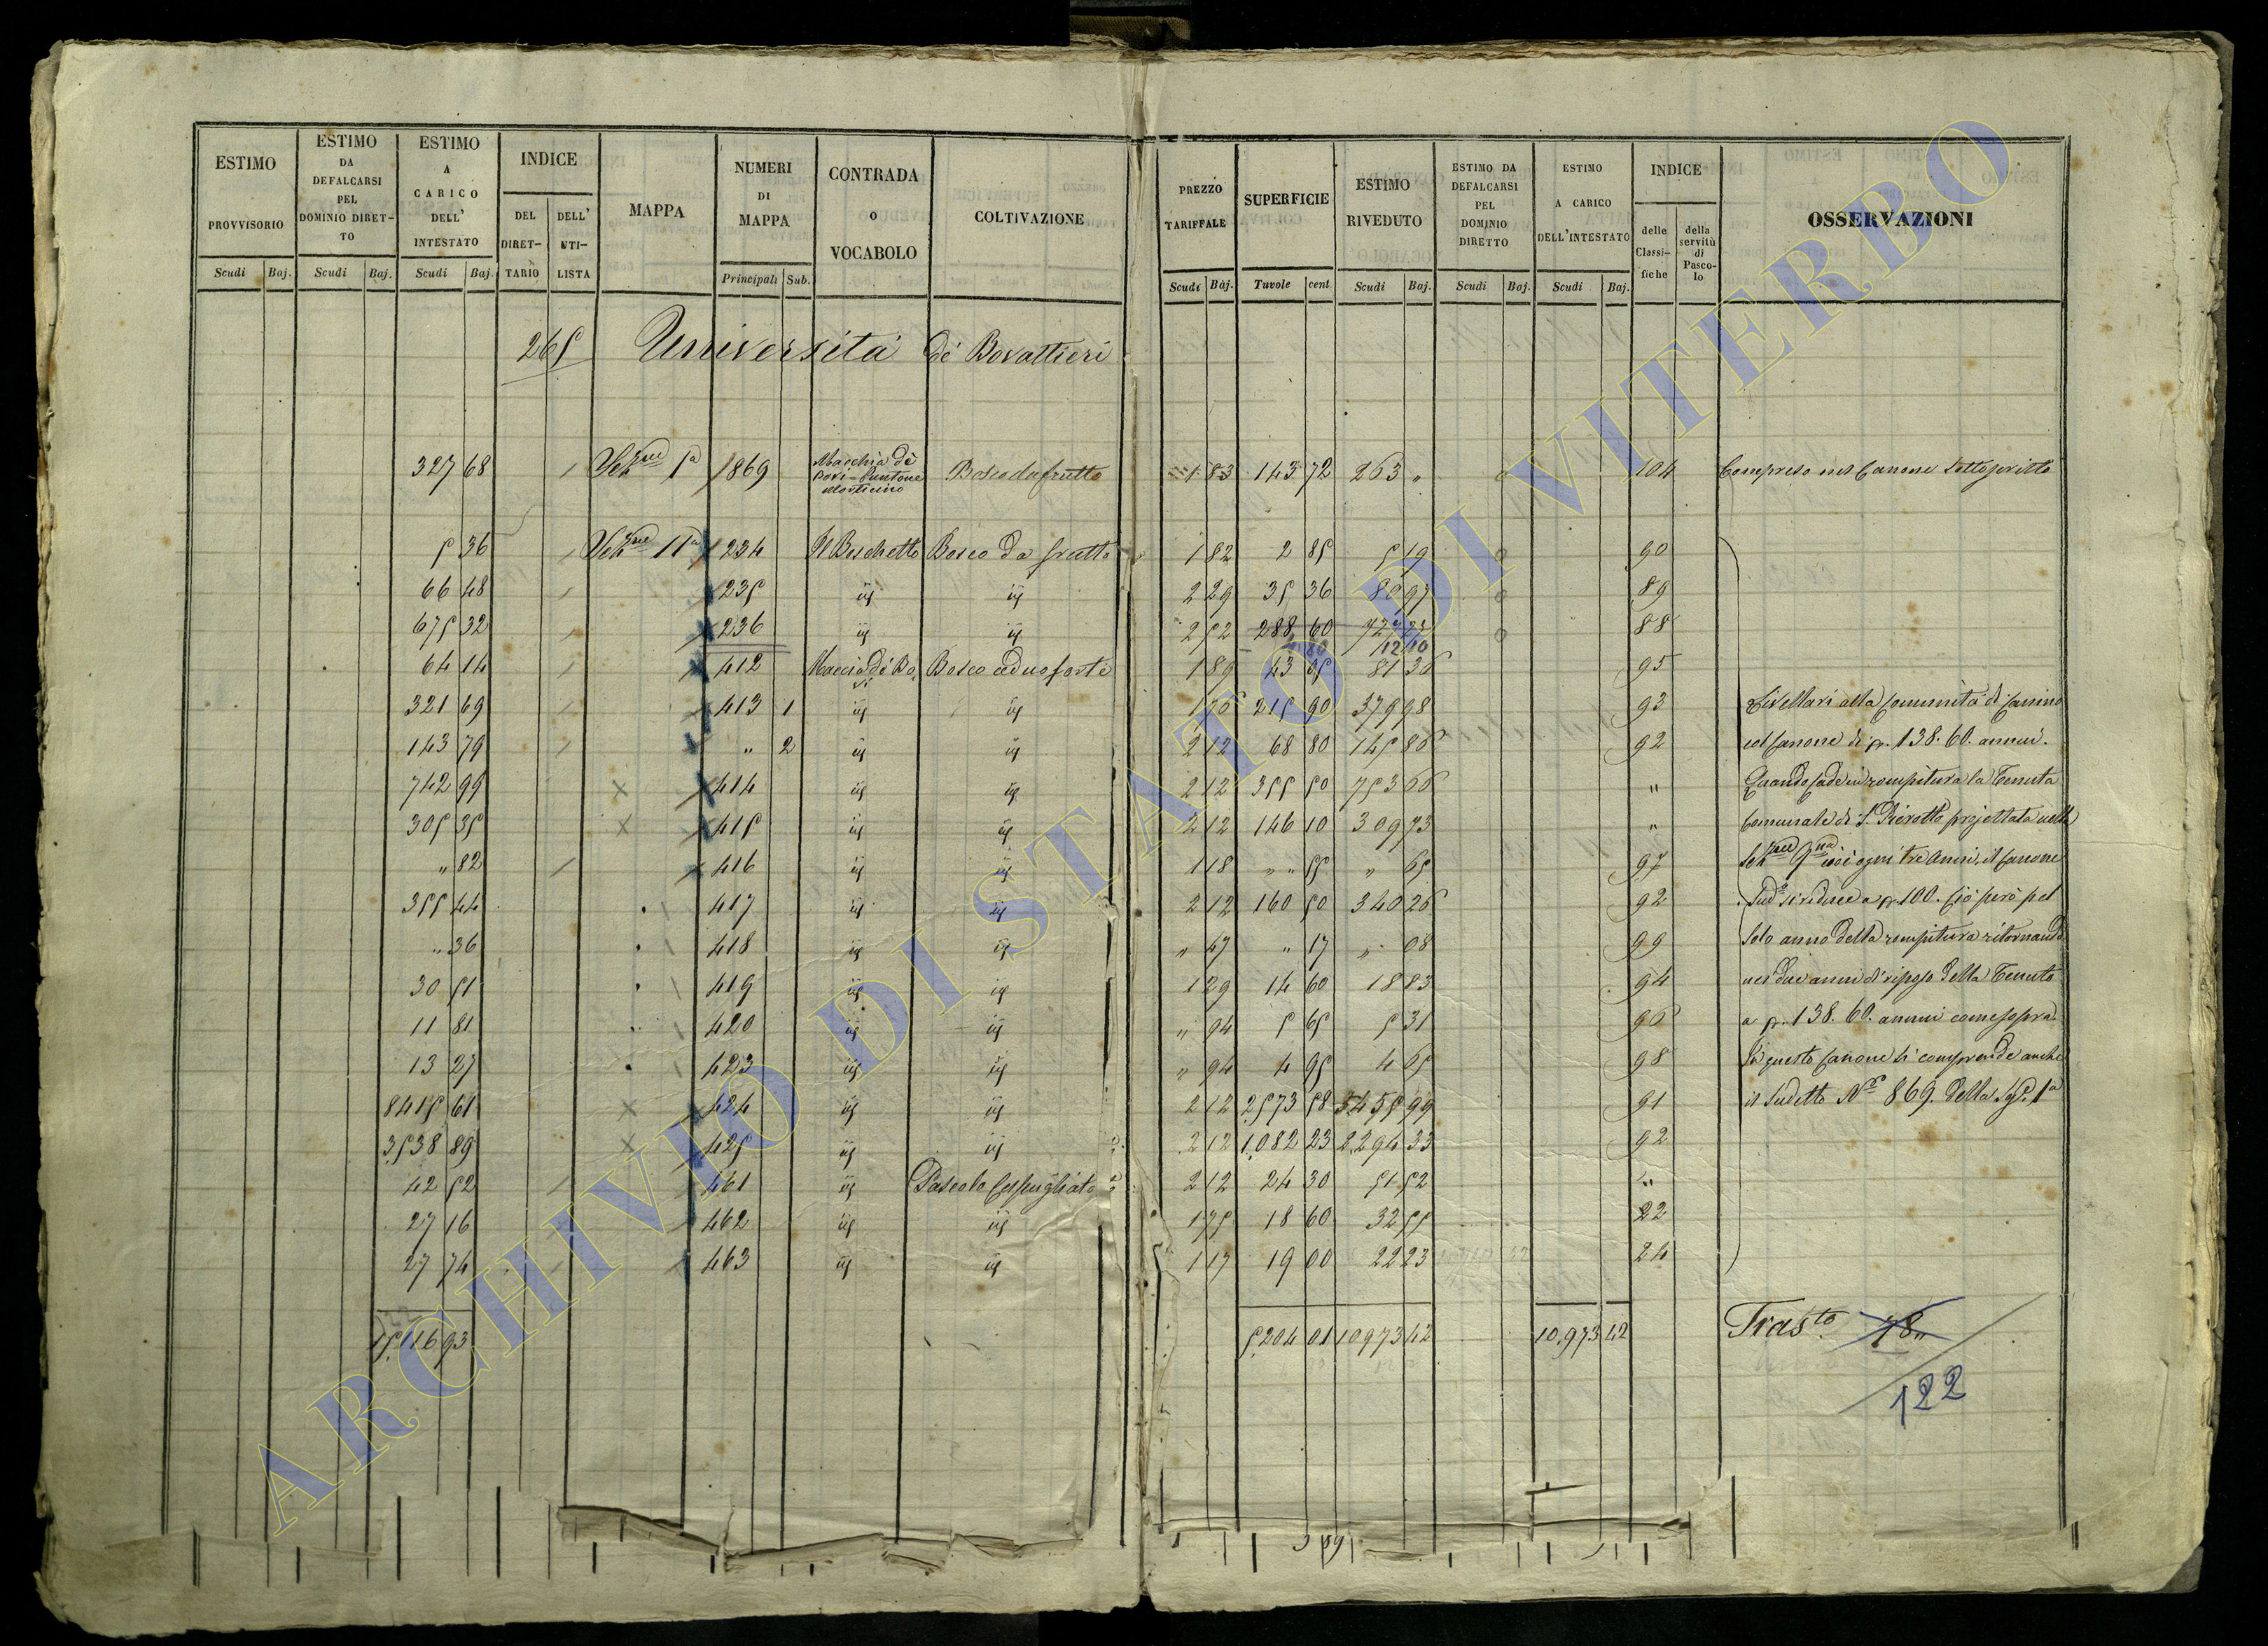 ESTIMO PROVVISORIO Scudi Baj.
ESTIMO DA DEFALCARSI PEL DOMINIO DIRETTO Scudi Baj.
ESTIMO A CARICO DELL' INTESTATO Scudi Baj.
INDICE DEL DIRETTARIO DELL' UTILISTA
MAPPA
NUMERI DI MAPPA Principali Sub.
CONTRADA o VOCABOLO
COLTIVAZIONE
PREZZO TARIFFALE Scudi Baj.
SUPERFICIE Tavole cent
ESTIMO RIVEDUTO Scudi Baj.
ESTIMO DA DEFALCARSI PEL DOMINIO DIRETTO Scudi Baj.
ESTIMO A CARICO DELL'INTESTATO Scudi Baj.
INDICE delle Classifiche della servitù di Pascolo
OSSERVAZIONI
265 Università dè Bovattieri
327 68 Sezne 1a 869 Macchia dè Bovi = Puntone Bosco da frutto 1 83 143 72 263 " 104 Compreso nel Canone sottoscritto
5 36 Sezne 11a 234 Il Boschetto Bosco da frutto 1 82 2 85 5 19 0 90
66 48 235 iij iij 2 29 35 36 80 97 0 89
675 32 236 iij iij 2 52 288 60 727 27 0 88
80 12 10
64 14 412 Maccia dè Bovi Bosco ceduo forte 1 89 43 05 81 36 95
321 69 413 1 iij iij 1 76 215 90 379 98 93 Livellari alla Comunità di Canino
143 79 " 2 iij iij 2 12 68 80 145 86 92 col Canone di sc. 138. 60. annui.
742 99 414 iij iij 2 12 355 50 753 66 " Quando cade in rompitura la Tenuta
305 35 415 iij iij 2 12 146 10 309 73 " Comunale di S. Pierotto projettata nella
" 82 416 iij iij 1 18 " 55 " 65 97 Sezne 9na cioè ogni tre Anni, il Canone
355 44 417 iij iij 2 12 160 50 340 26 92 Sudo si riduce a sc. 100. ciò però pel
" 36 418 iij iij " 47 " 17 " 08 99 solo anno della rompitura ritornando
30 51 419 iij iij 1 29 14 60 18 83 94 nei due anni di riposo della Tenuta
11 81 420 iij iij " 94 5 65 5 31 96 a sc. 138. 60. annui come sopra
13 27 423 iij iij " 94 4 95 4 65 98 In questo Canone si comprende anche
8415 61 424 iij iij 2 12 2573 58 5455 99 91 il Sudetto No 869. della Sez. 1a
3538 89 425 iij iij 2 12 1,082 23 2294 33 92
42 52 461 iij Pascolo Cespugliato 2 12 24 30 51 52 "
27 16 462 iij iij 1 75 18 60 32 55 22
27 74 463 iij iij 1 17 19 00 22 23 24
15,116 93 5,204 01 10973 42 10,973 42 Trasto 78
122
ARCHIVIO DI STATO DI VITERBO